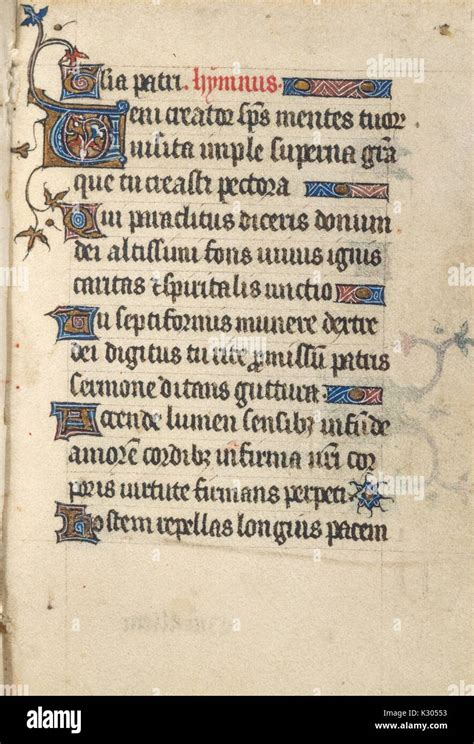 Glia patri. hymnus.
Veni creator sp̄s mentes tuor
uisita imple superna gr̄a
que tu creasti pectora
Qui paraclitus diceris donum
dei altissimi fons uiuus ignis
caritas & spiritalis unctio
Tu septiformis munere dextre
dei digitus tu rite ꝓmissū patris
sermone ditans guttura
Accende lumen sensibꝫ infūde
amorē cordibꝫ infirma nr̄i cor
poris uirtute firmans perpeti
Hostem repellas longius pacem
alamy
Image ID: K30553
www.alamy.com